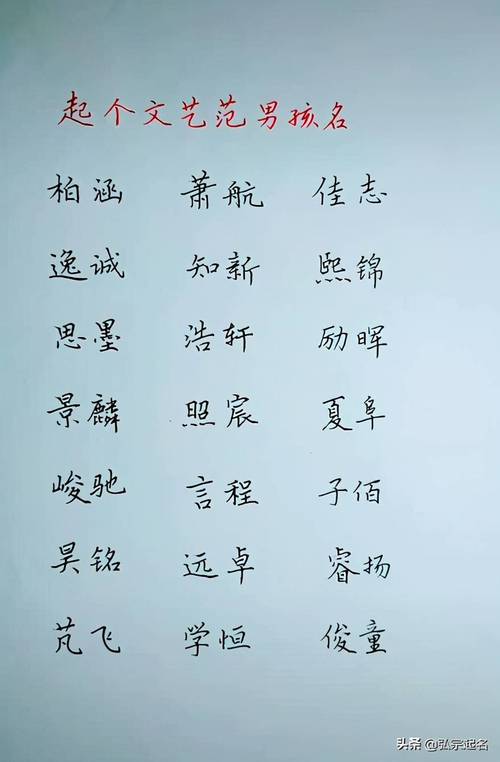 起个文艺范男孩名
柏涵 萧航 佳志
逸诚 知新 熙锦
思墨 浩轩 励晖
景麟 照宸 夏阜
峻驰 言程 子佰
昊铭 远卓 睿扬
芃飞 学恒 俊童
头条 @弘宗起名